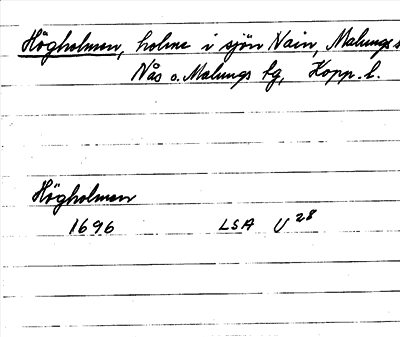 Högholmen, holme i sjön Nain, Malungs s
Nås o. Malungs tg, Kopp. l.
Högholmen
1696 LSA U 28